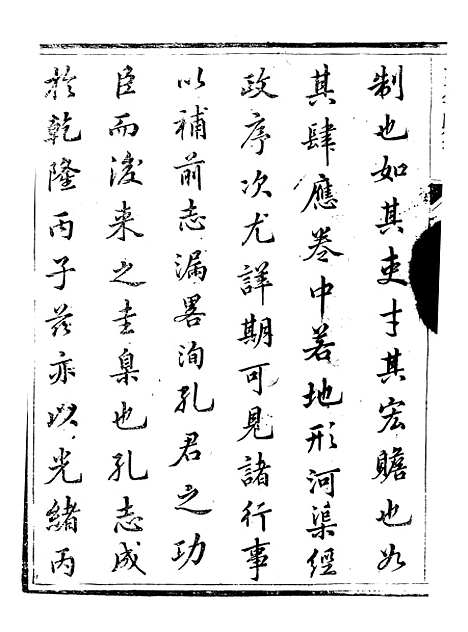 制也如其吏才其宏贍也如
其肆應卷中若地形河渠經
政序次尤詳期可見諸行事
以補前志漏畧洵孔君之功
臣而後來之圭臬也孔志成
於乾隆丙子茲亦以光緒丙